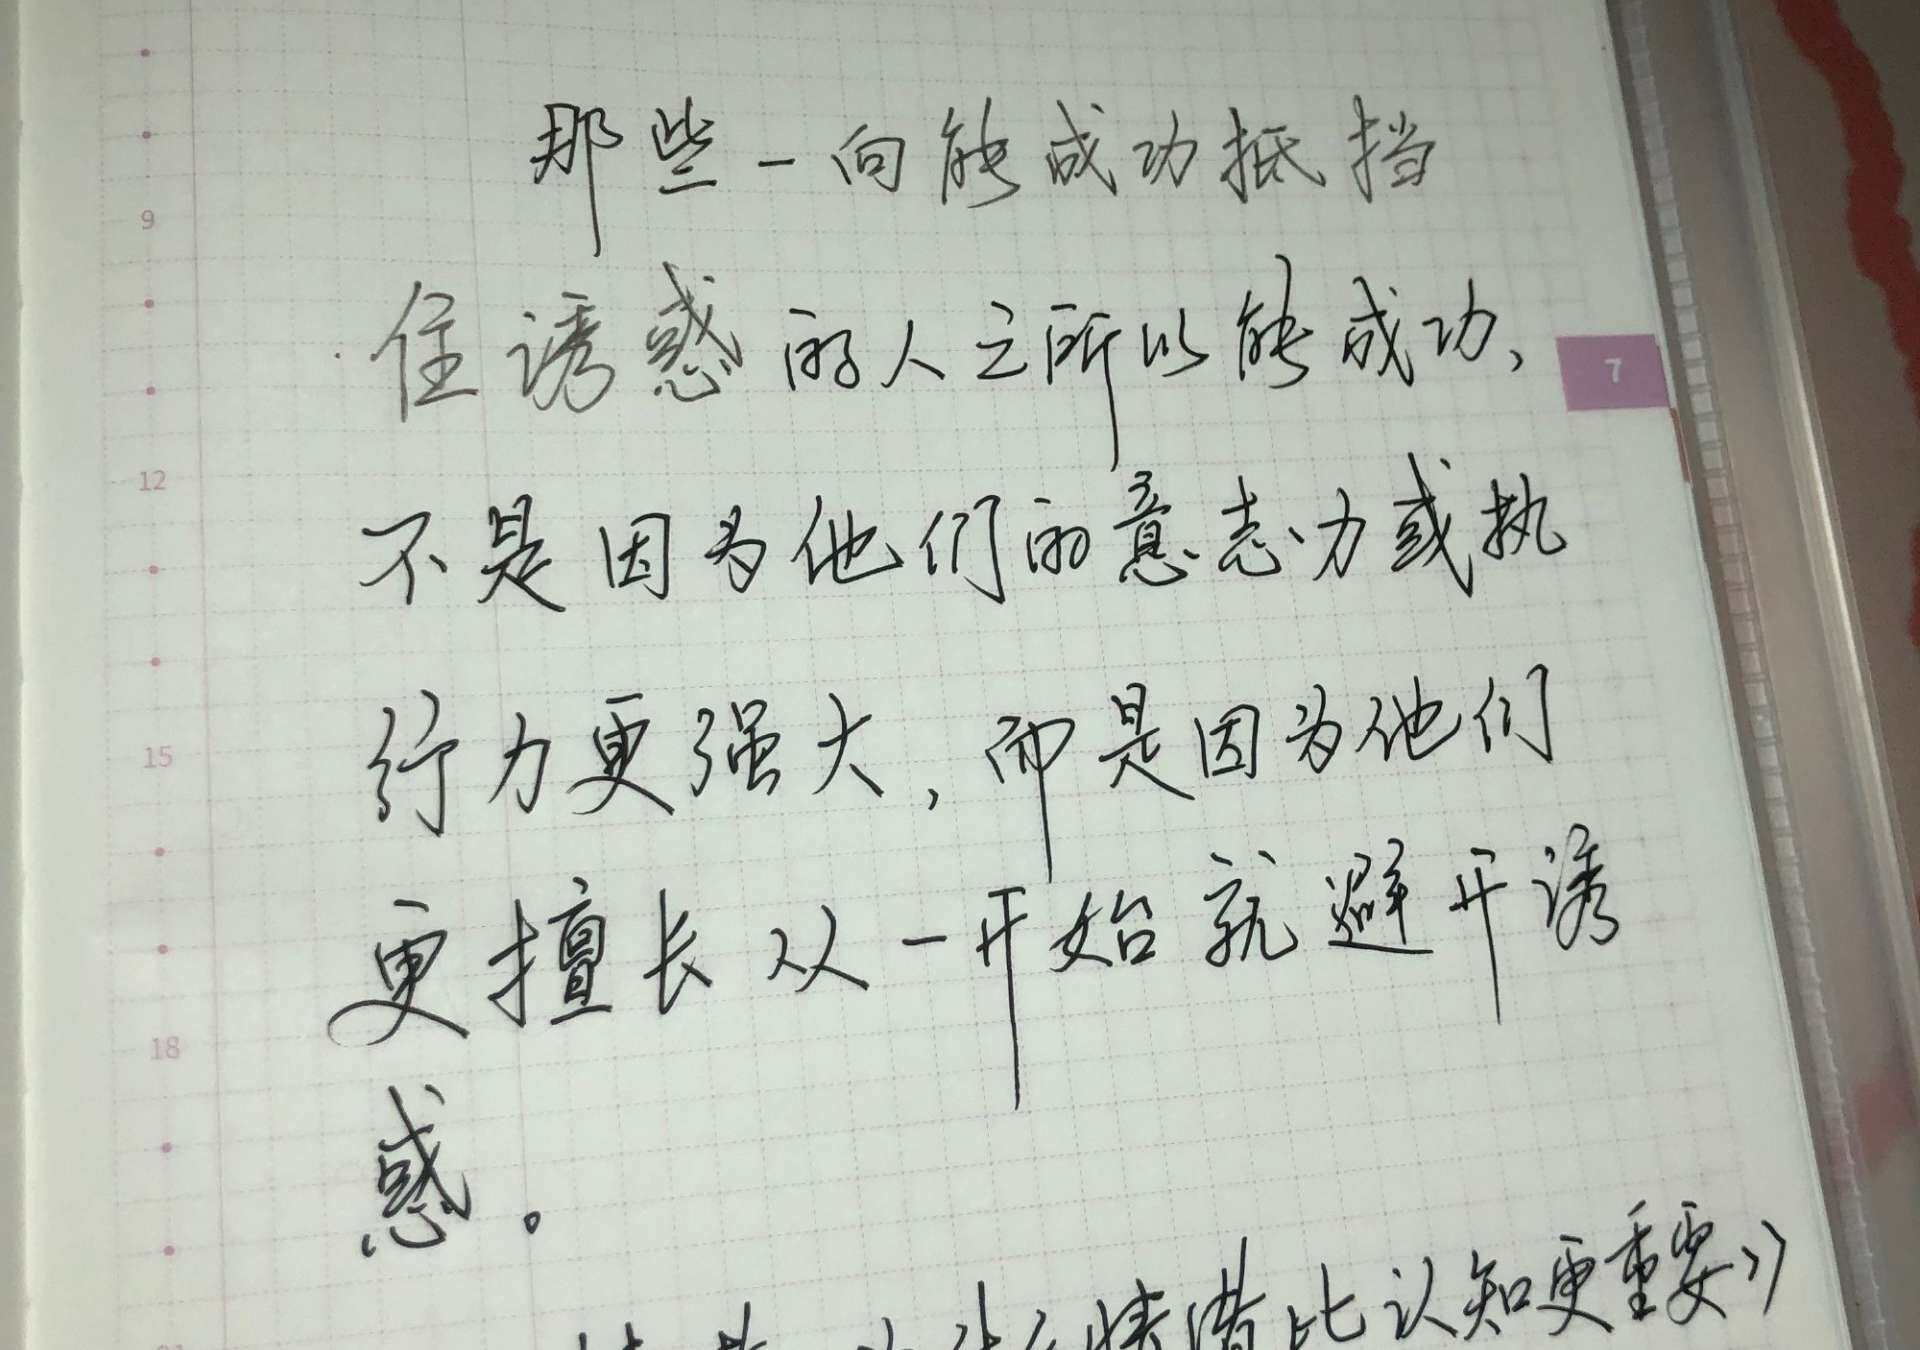 那些一向能成功抵挡
住诱惑的人之所以能成功、
不是因为他们的意志力或执
行力更强大，而是因为他们
更擅长从一开始就避开诱
惑。
情绪比认知更重要》
9
12
15
18
7